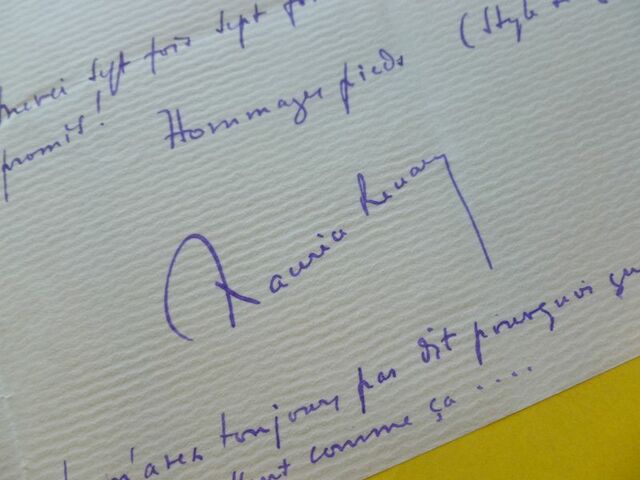 merci sept fois sept
promis!
Hommages pieds (Style
Renar
m'avez toujours pas dit pourquoi
comme ça ....